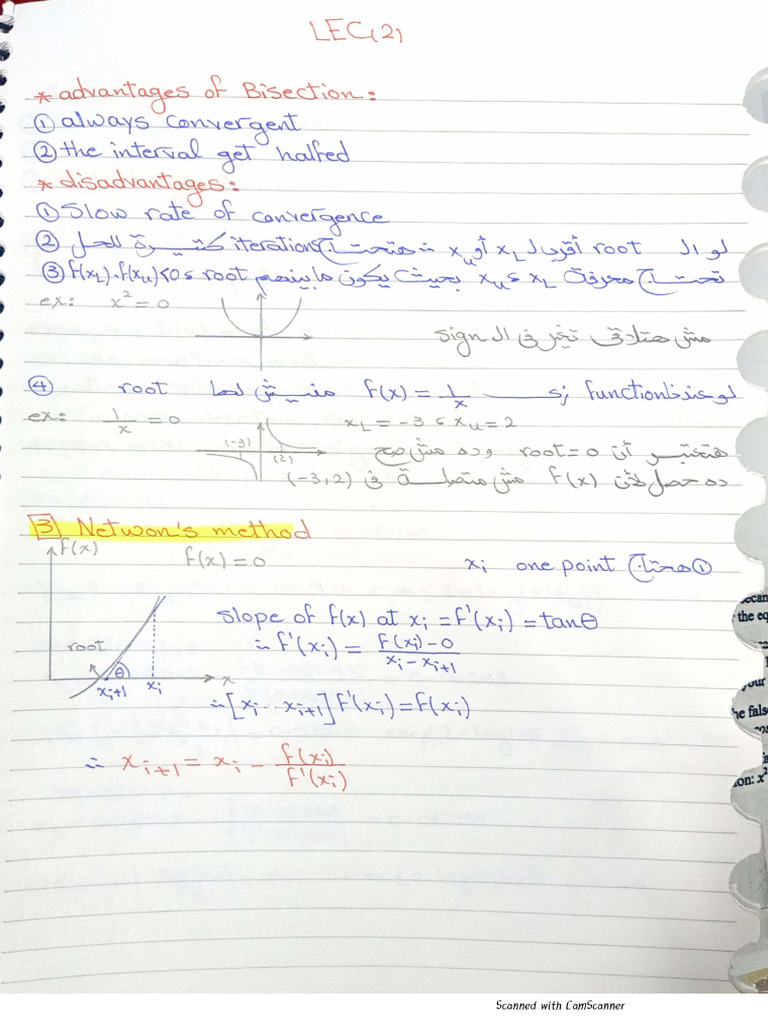 LEC(2)
* advantages of Bisection:
① always convergent
② the interval get halfed
* disadvantages:
① Slow rate of convergence
② لو ال root أقرب ل xL أو xu ⇐ هتحتاج iterations كتيرة للحل
③ تحتاج معرفة xL و xu بحيث يكون ما بينهم root و f(xL).f(xu)<0
ex: x² = 0
مش هتلاقى تغير فى ال sign
④ لو عندنا function زى f(x) = 1/x مفيش لها root
ex: 1/x = 0 xL = -3 و xu = 2
(-3) (2)
هتعتبر أن root = 0 وده مش صح
ده حصل لأن f(x) مش متصلة فى (-3,2)
3 Netwon's method
f(x) f(x) = 0
① محتاج one point xi
slope of f(x) at xi = f'(xi) = tanθ
∴ f'(xi) = f(xi) - 0 / xi - xi+1
root θ
xi+1 xi x
∴ [xi - xi+1] f'(xi) = f(xi)
∴ xi+1 = xi - f(xi) / f'(xi)
the eq
your
he false
on: x²
Scanned with CamScanner